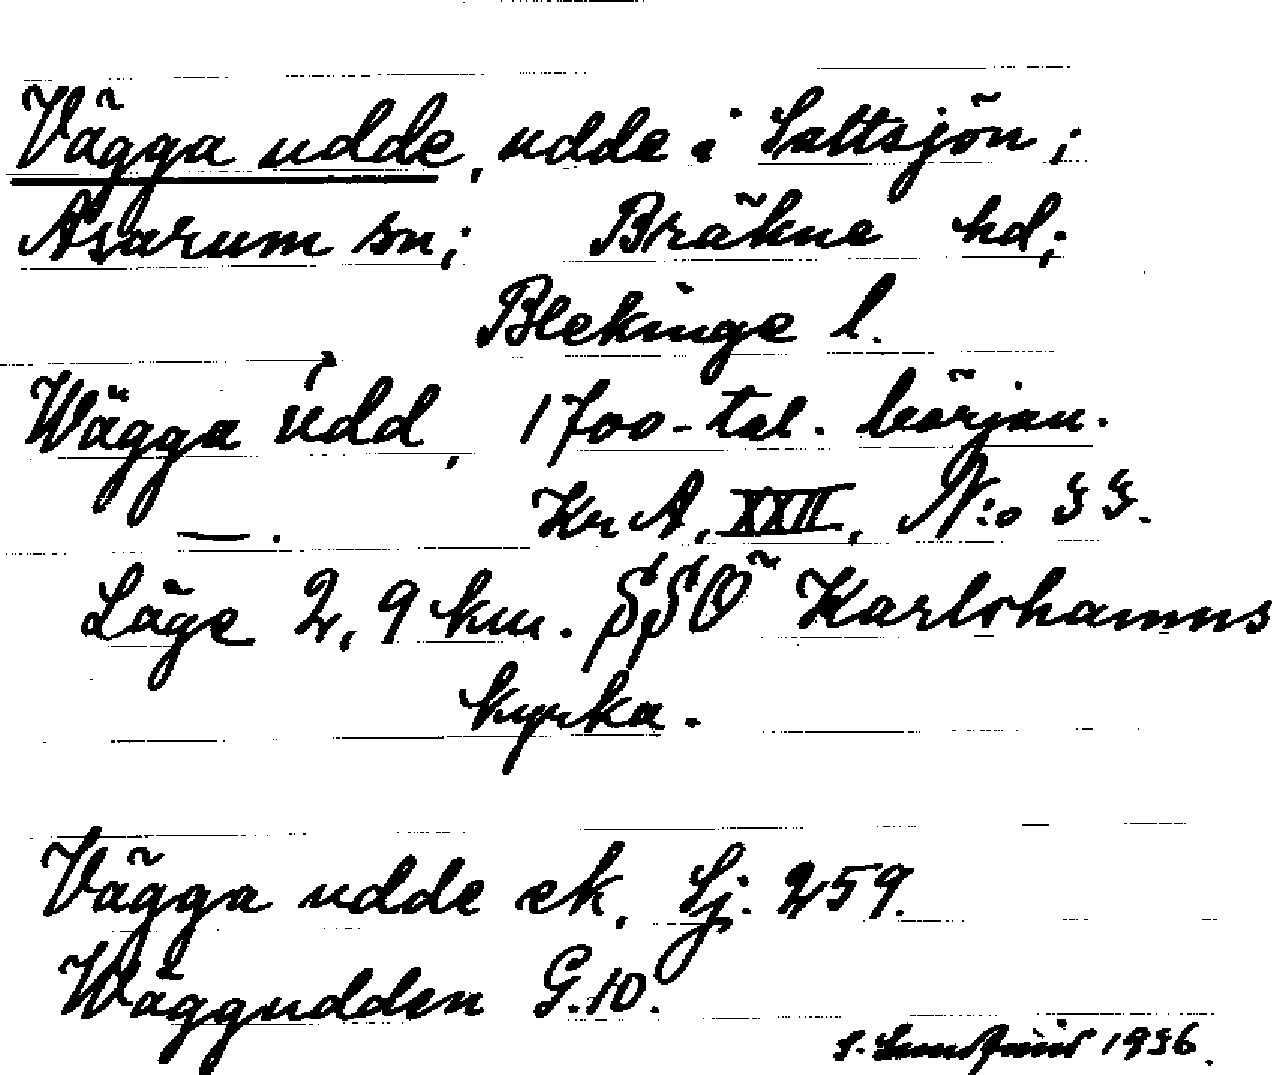 Vägga udde, udde i Saltsjön;
Asarum sn; Bräkne hd;
Blekinge l.
Wägga udd, 1700-tal. början.
— . KrA, XXII, N:o 33.
Läge 2,9 km. SSO Karlshamns
kyrka.
Vägga udde ek. Sj. 259.
Wäggudden G.10.
1936